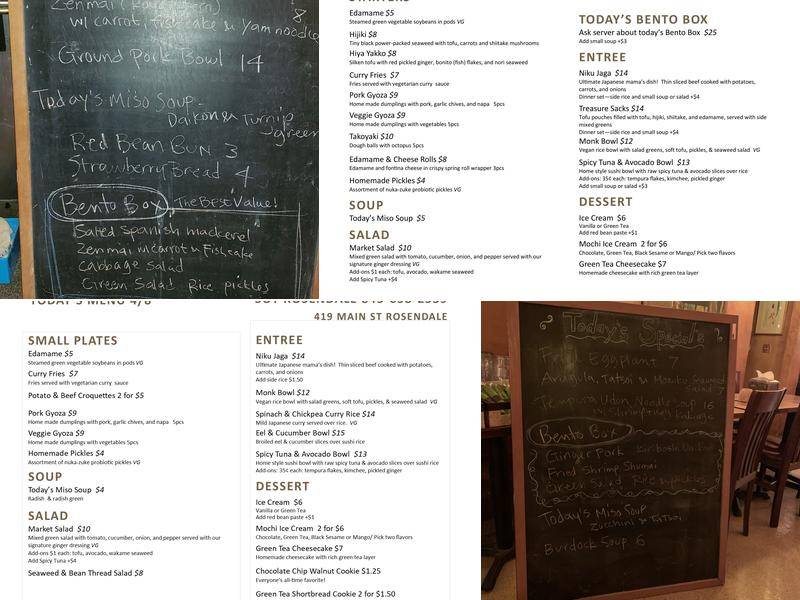 w/ carrot, fishcake & Yam noodle
8
Ground Pork Bowl 14
Today's Miso Soup -
Daikon & Turnip
green
Red Bean Bun 3
Strawberry Bread 4
Bento Box The Best Value!
Salted Spanish mackerel
Zenmai w/carrot & Fishcake
Cabbage Salad
Green Salad Rice pickles
Edamame $5
Steamed green vegetable soybeans in pods VG
Hijiki $8
Tiny black power-packed seaweed with tofu, carrots and shiitake mushrooms
Hiya Yakko $8
Silken tofu with red pickled ginger, bonito (fish) flakes, and nori seaweed
Curry Fries $7
Fries served with vegetarian curry sauce
Pork Gyoza $9
Home made dumplings with pork, garlic chives, and napa 5pcs
Veggie Gyoza $9
Home made dumplings with vegetables 5pcs
Takoyaki $10
Dough balls with octopus 5pcs
Edamame & Cheese Rolls $8
Edamame and fontina cheese in crispy spring roll wrapper 3pcs
Homemade Pickles $4
Assortment of nuka-zuke probiotic pickles VG
SOUP
Today's Miso Soup $5
SALAD
Market Salad $10
Mixed green salad with tomato, cucumber, onion, and pepper served with our
signature ginger dressing VG
Add-ons $1 each: tofu, avocado, wakame seaweed
Add Spicy Tuna +$4
TODAY'S BENTO BOX
Ask server about today's Bento Box $25
Add small soup +$3
ENTREE
Niku Jaga $14
Ultimate Japanese mama's dish! Thin sliced beef cooked with potatoes,
carrots, and onions
Dinner set—side rice and small soup or salad +$4
Treasure Sacks $14
Tofu pouches filled with tofu, hijiki, shiitake, and edamame, served with side
mixed greens
Dinner set—side rice and small soup +$4
Monk Bowl $12
Vegan rice bowl with salad greens, soft tofu, pickles, & seaweed salad VG
Spicy Tuna & Avocado Bowl $13
Home style sushi bowl with raw spicy tuna & avocado slices over sushi rice
Add-ons: 35¢ each: tempura flakes, kimchee, pickled ginger
Add small soup or salad +$3
DESSERT
Ice Cream $6
Vanilla or Green Tea
Add red bean paste +$1
Mochi Ice Cream 2 for $6
Chocolate, Green Tea, Black Sesame or Mango/ Pick two flavors
Green Tea Cheesecake $7
Homemade cheesecake with rich green tea layer
TODAY'S MENU 4/8
SMALL PLATES
Edamame $5
Steamed green vegetable soybeans in pods VG
Curry Fries $7
Fries served with vegetarian curry sauce
Potato & Beef Croquettes 2 for $5
Pork Gyoza $9
Home made dumplings with pork, garlic chives, and napa 5pcs
Veggie Gyoza $9
Home made dumplings with vegetables 5pcs
Homemade Pickles $4
Assortment of nuka-zuke probiotic pickles VG
SOUP
Today's Miso Soup $4
Radish & radish green
SALAD
Market Salad $10
Mixed green salad with tomato, cucumber, onion, and pepper served with our
signature ginger dressing VG
Add-ons $1 each: tofu, avocado, wakame seaweed
Add Spicy Tuna +$4
Seaweed & Bean Thread Salad $8
419 MAIN ST ROSENDALE
ENTREE
Niku Jaga $14
Ultimate Japanese mama's dish! Thin sliced beef cooked with potatoes,
carrots, and onions
Add side rice $1.50
Monk Bowl $12
Vegan rice bowl with salad greens, soft tofu, pickles, & seaweed salad VG
Spinach & Chickpea Curry Rice $14
Mild Japanese curry served over rice. VG
Eel & Cucumber Bowl $15
Broiled eel & cucumber slices over sushi rice
Spicy Tuna & Avocado Bowl $13
Home style sushi bowl with raw spicy tuna & avocado slices over sushi rice
Add-ons: 35¢ each: tempura flakes, kimchee, pickled ginger
DESSERT
Ice Cream $6
Vanilla or Green Tea
Add red bean paste +$1
Mochi Ice Cream 2 for $6
Chocolate, Green Tea, Black Sesame or Mango/ Pick two flavors
Green Tea Cheesecake $7
Homemade cheesecake with rich green tea layer
Chocolate Chip Walnut Cookie $1.25
Everyone's all-time favorite!
Green Tea Shortbread Cookie 2 for $1.50
Today's Specials
Eggplant 7
Arugula, Tatsoi & Mozuku Seaweed
Salad 7
Tempura Udon Noodle Soup 16
w/ Shrimp, Veg
Bento Box
Ginger Pork
Fried Shrimp Shumai
Green Salad Rice w/pickles
Today's Miso Soup
Zucchini & Tatsoi
Burdock Soup 6